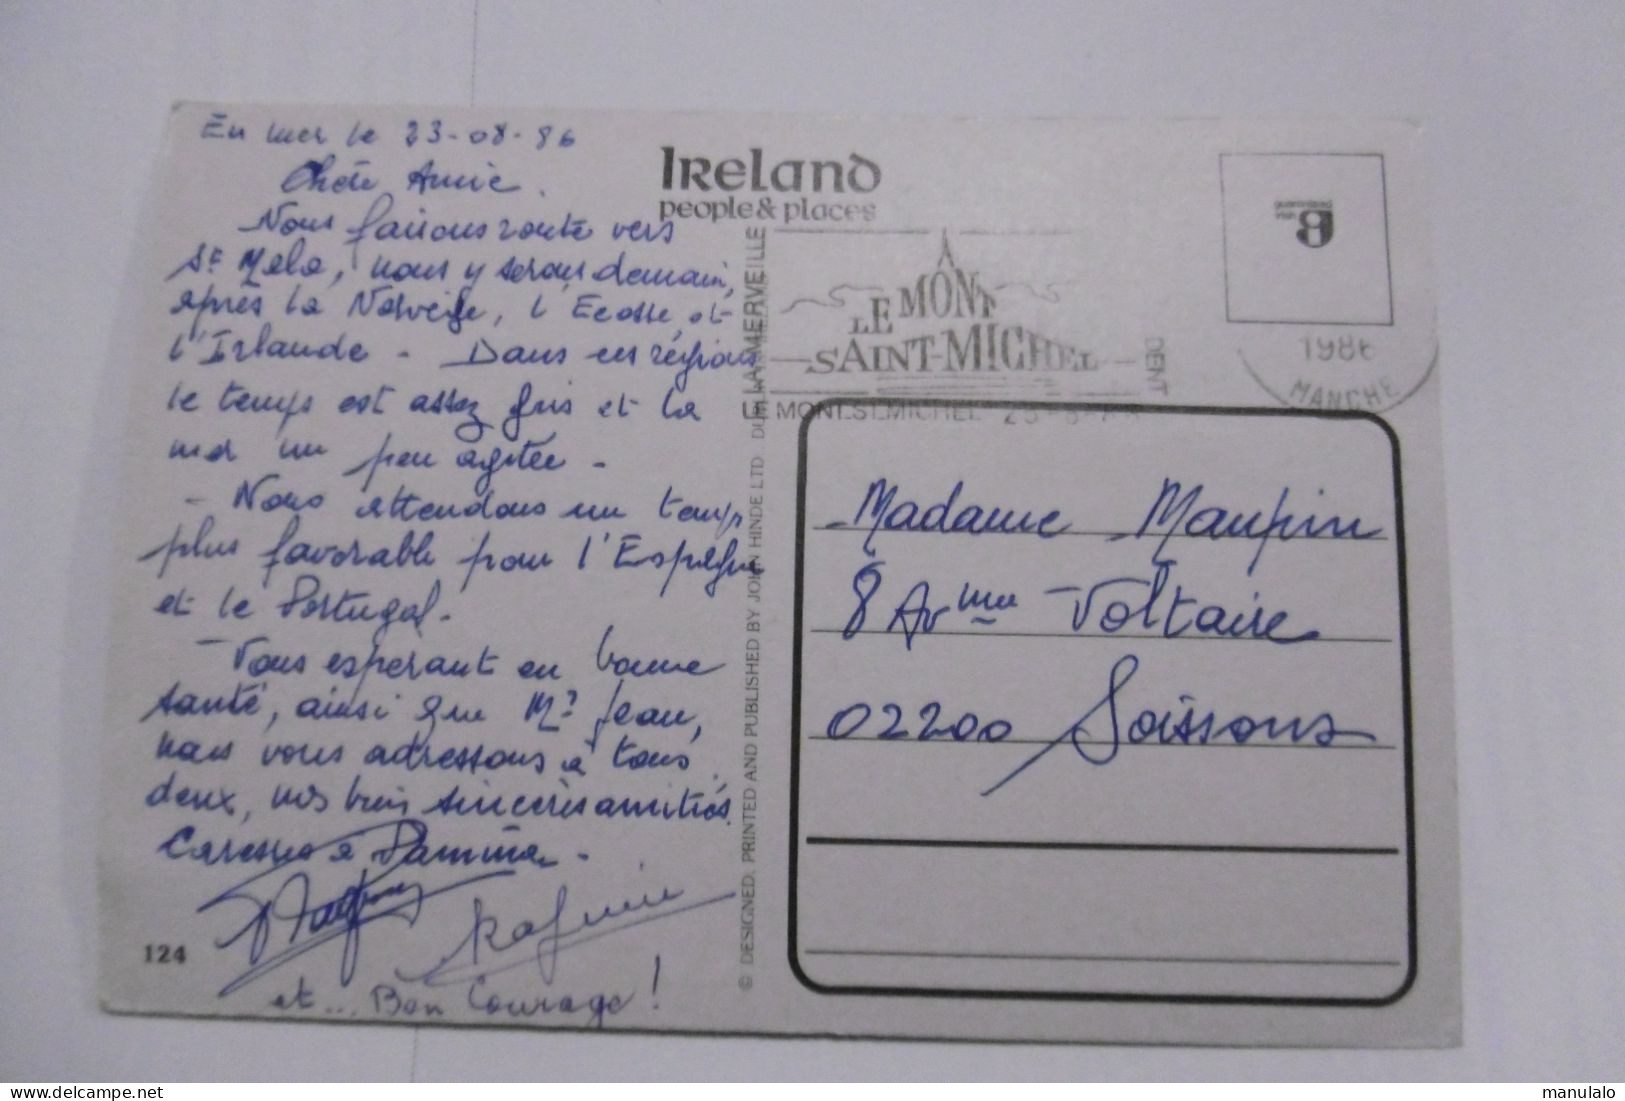 En mer le 23-08-86
Chère Amie.
Nous faisons route vers
St Malo, nous y serons demain,
après la Norvège, l'Ecosse, et
l'Irlande - Dans ces régions
le temps est assez gris et la
mer un peu agitée -
- Nous attendons un temps
plus favorable pour l'Espagne
et le Portugal.
- Vous esperant en bonne
santé, ainsi que Mr Jean,
nous vous adressons à tous
deux, nos bien sincères amitiés.
Caresses à
et... Bon Courage!
124
IRELAND
people & places
© DESIGNED, PRINTED AND PUBLISHED BY JOHN HINDE LTD.
LA MERVEILLE
À
LE MONT
SAINT-MICHEL
LE MONT-ST-MICHEL
1986
MANCHE
guaranteed
Madame Maupin
8 Av me Voltaire
02200 Soissons
www.delcampe.net
manulalo